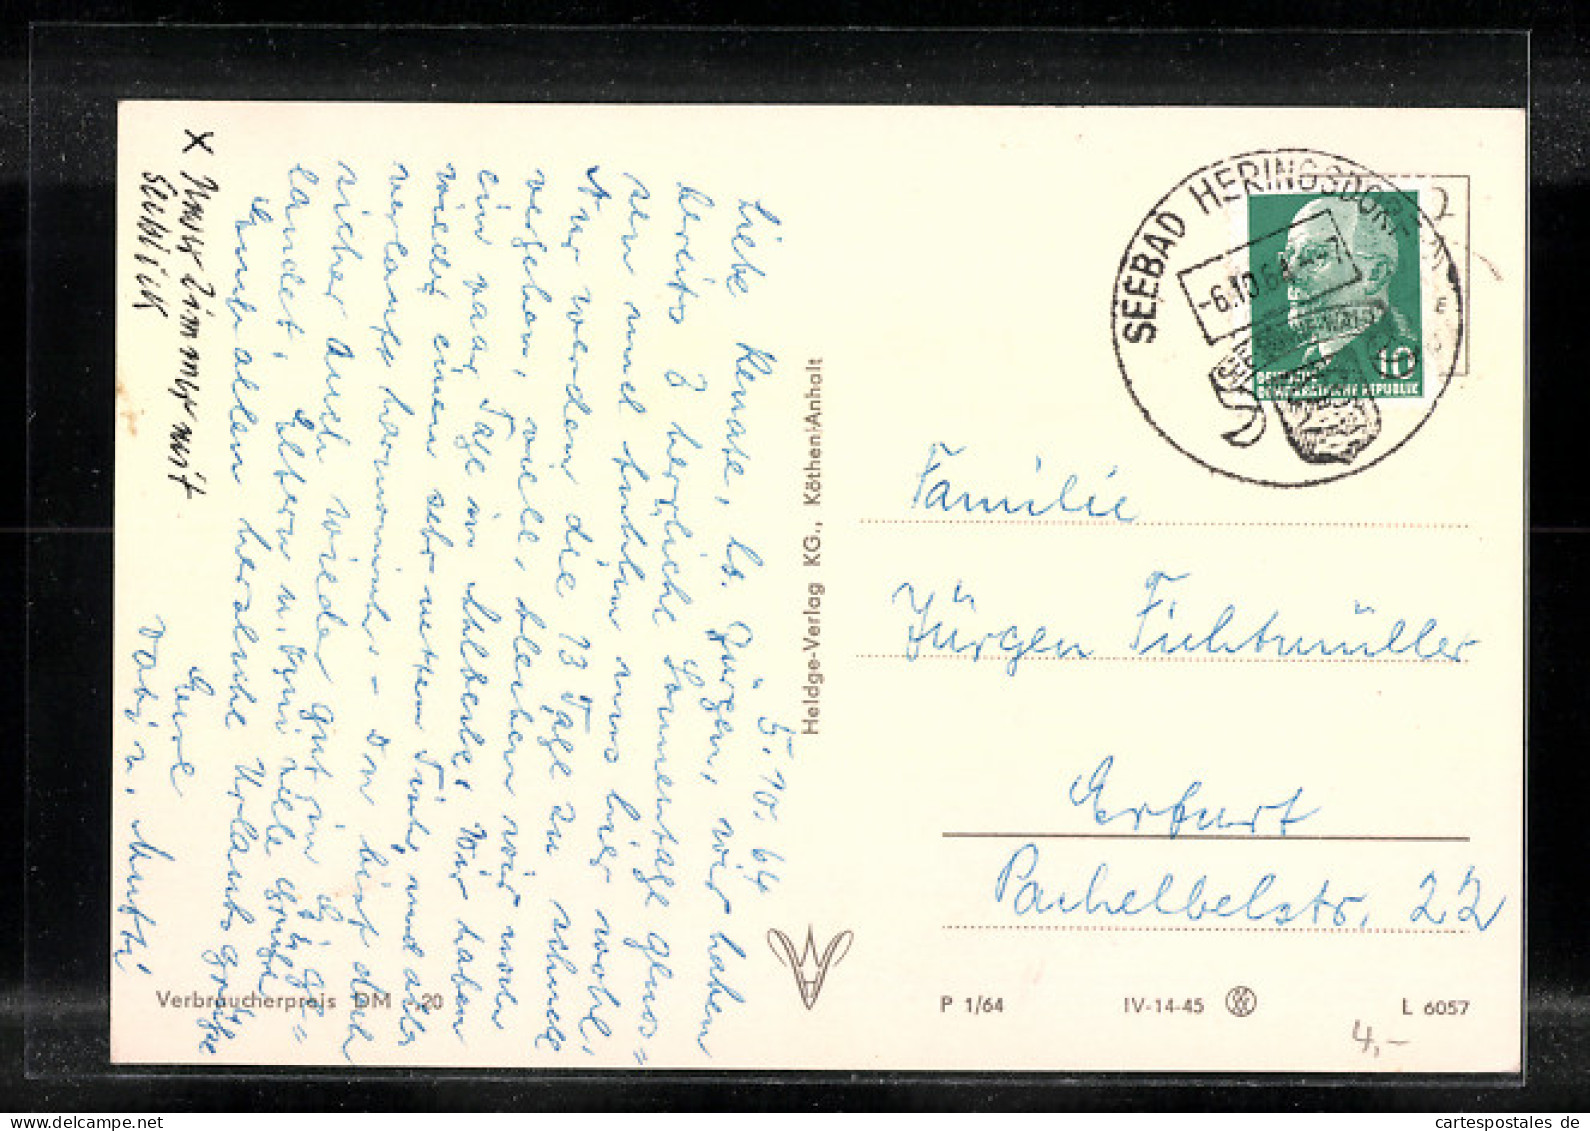 x Unser Zimmer mit
Seeblick
5.10.64
Liebe Renate, lb. Jürgen, wir haben
bereits 7 herrliche Sonnentage genos=
sen und fühlen uns hier wohl.
Nur werden die 13 Tage zu schnell
vergehen, viell. bleiben wir noch
ein paar Tage in Ahlbeck. Wir haben
wieder einen sehr netten Tisch, und alles
verläuft harmonisch. - Du bist doch
sicher auch wieder gut in  ge=
landet, Eltern u. Omi viele Grüße
Euch allen herzliche Urlaubsgrüße
Eure
Vati u. Mutti
Heldge-Verlag KG., Köthen/Anhalt
SEEBAD HERINGSDORF
-6.10.64
10
DEUTSCHE
DEMOKRATISCHE REPUBLIK
Familie
Jürgen Fichtmüller
Erfurt
Pachelbelstr. 22
Verbraucherpreis DM -,20
P 1/64 IV-14-45 L 6057
4,-
cartespostales.de